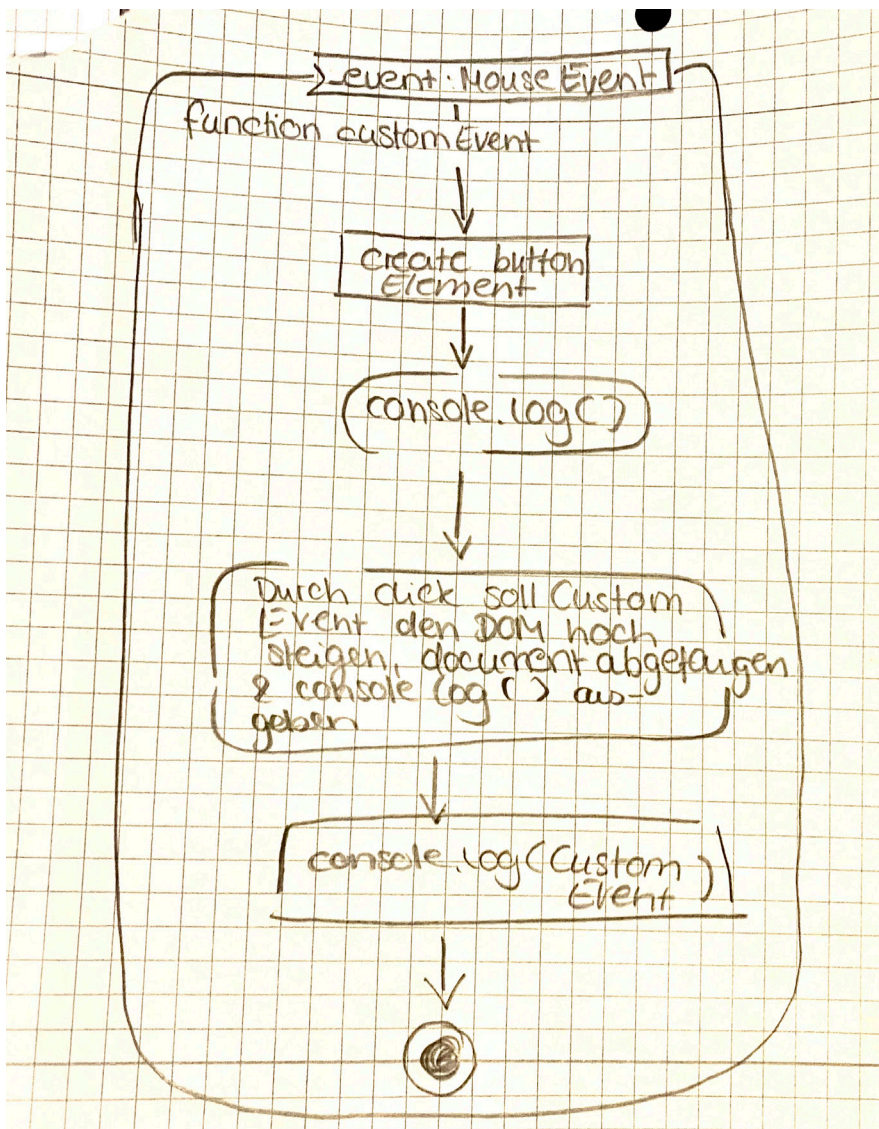 event: MouseEvent
function customEvent
create button
Element
console.log()
Durch click soll Custom
Event den DOM hoch
steigen, document abgefangen
& console log () aus-
geben
console.log(Custom
Event)